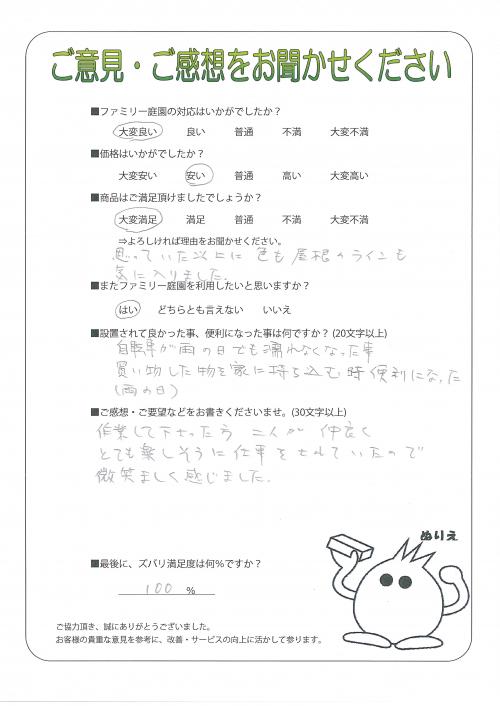 ご意見・ご感想をお聞かせください
■ファミリー庭園の対応はいかがでしたか？
大変良い 良い 普通 不満 大変不満
■価格はいかがでしたか？
大変安い 安い 普通 高い 大変高い
■商品はご満足頂けましたでしょうか？
大変満足 満足 普通 不満 大変不満
⇒よろしければ理由をお聞かせください。
思っていた以上に 色も 屋根のラインも
気に入りました.
■またファミリー庭園を利用したいと思いますか？
はい どちらとも言えない いいえ
■設置されて良かった事、便利になった事は何ですか？(20文字以上)
自転車が雨の日でも濡れなくなった事
買い物した物を家に持ち込む時便利になった
(雨の日)
■ご感想・ご要望などをお書きくださいませ。(30文字以上)
作業して下さった 二人が 仲良く
とても楽しそうに仕事をされていたので
微笑ましく感じました.
ぬりえ
■最後に、ズバリ満足度は何％ですか？
100 %
ご協力頂き、誠にありがとうございました。
お客様の貴重な意見を参考に、改善・サービスの向上に活かして参ります。